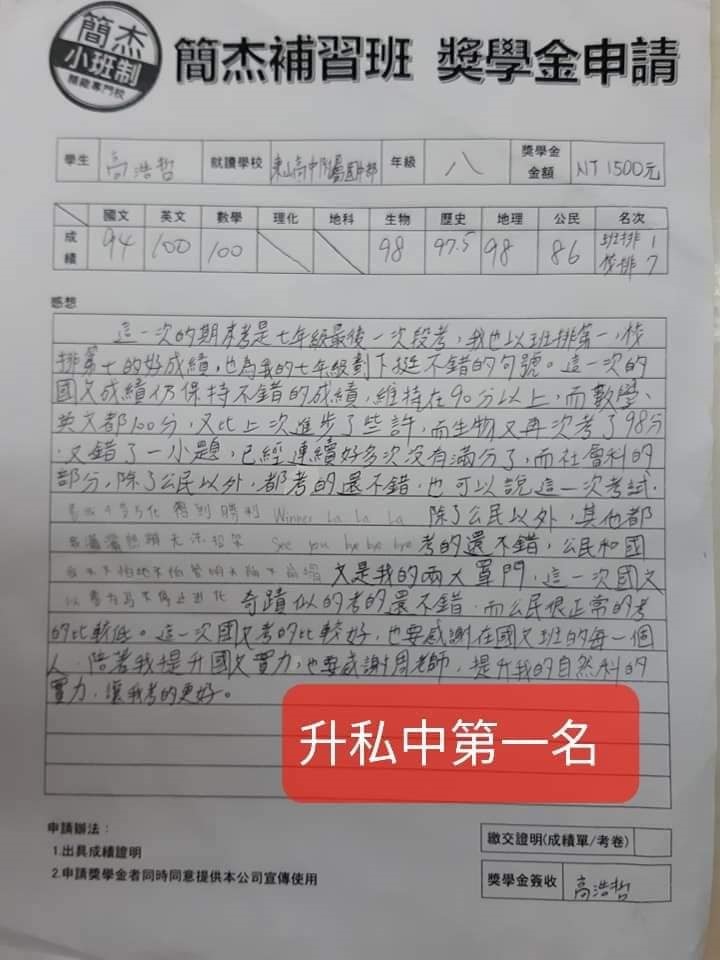 簡杰
小班制
簡杰補習班 獎學金申請
學生 高浩哲 就讀學校 東山高中附屬國中部 年級 八 獎學金金額 NT 1500元
國文 英文 數學 理化 地科 生物 歷史 地理 公民 名次
成績 94 100 100 98 97.5 98 86 班排1 校排7
感想
這一次的期末考是七年級最後一次段考,我也以班排第一,校
排第七的好成績,也為我的七年級劃下挺不錯的句號。這一次的
國文成績仍保持不錯的成績,維持在90分以上,而數學、
英文都100分,又比上次進步了些許,而生物又再次考了98分
,又錯了一小題,已經連續好多次沒有滿分了,而社會科的
部分,除了公民以外,都考的還不錯,也可以說這一次考試,
得到勝利 Winner La La La 除了公民以外,其他都
See you bye bye bye 考的還不錯,公民和國
文是我的兩大罩門,這一次國文
奇蹟似的考的還不錯,而公民很正常的考
的比較低。這一次國文考的比較好,也要感謝在國文班的每一個
人,陪著我提升國文實力,也要感謝周老師,提升我的自然科的
實力,讓我考的更好。
升私中第一名
申請辦法:
1.出具成績證明
2.申請獎學金者同時同意提供本公司宣傳使用
繳交證明(成績單/考卷)
獎學金簽收 高浩哲